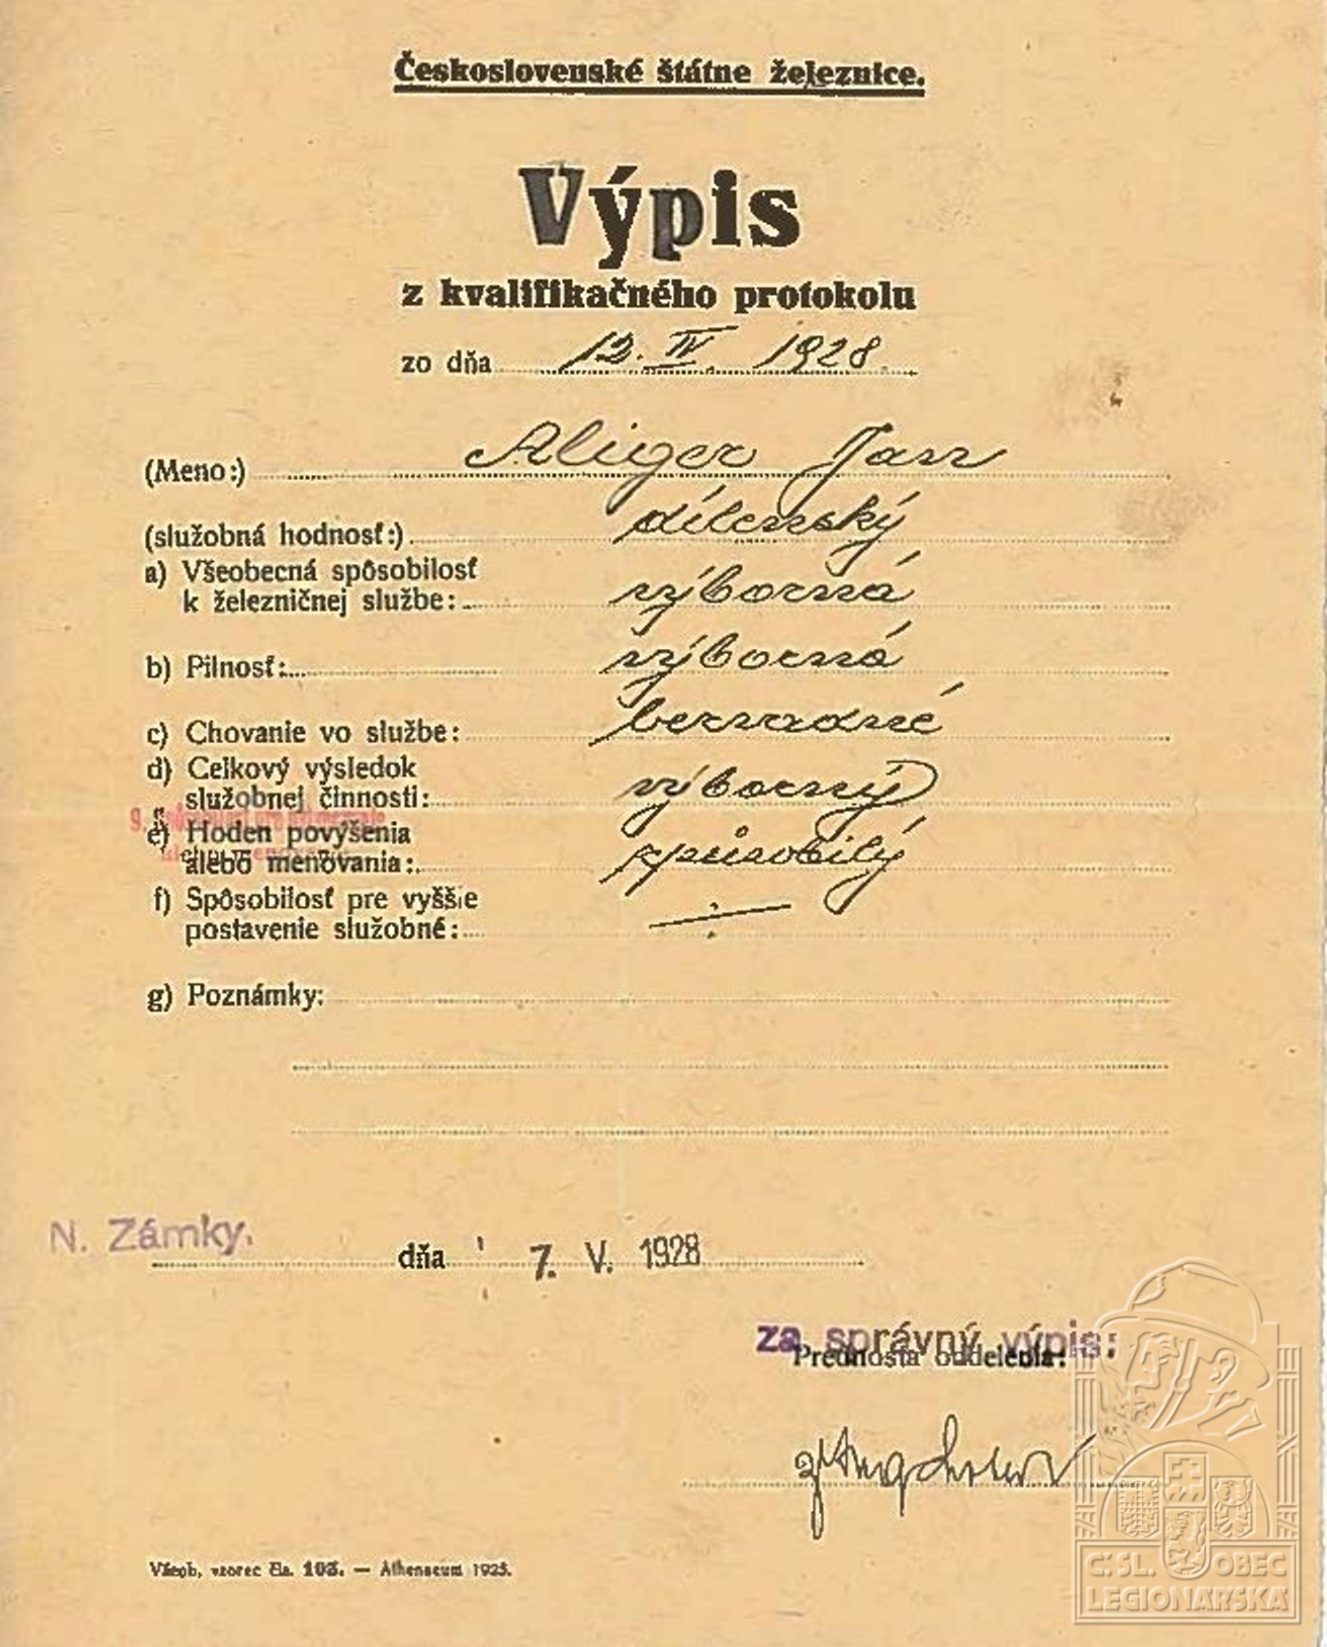 Československé štátne železnice.
Výpis
z kvalifikačného protokolu
zo dňa 12. IV. 1928.
(Meno:) Aliger Jan
(služobná hodnosť:) dílenský
a) Všeobecná spôsobilosť
k železničnej službe: výborná
b) Pilnosť: výborná
c) Chovanie vo službe: bezvadné
d) Celkový výsledok
služobnej činnosti: výborný
e) Hoden povýšenia
alebo menovania: způsobilý
f) Spôsobilosť pre vyššie
postavenie služobné:
g) Poznámky:
N. Zámky. dňa 7. V. 1928
za správný výpis:
Prednosta oddelenia:
Všeob. vzorec čís. 103. — Athenaeum 1925.
Č.SL. OBEC
LEGIONÁŘSKÁ